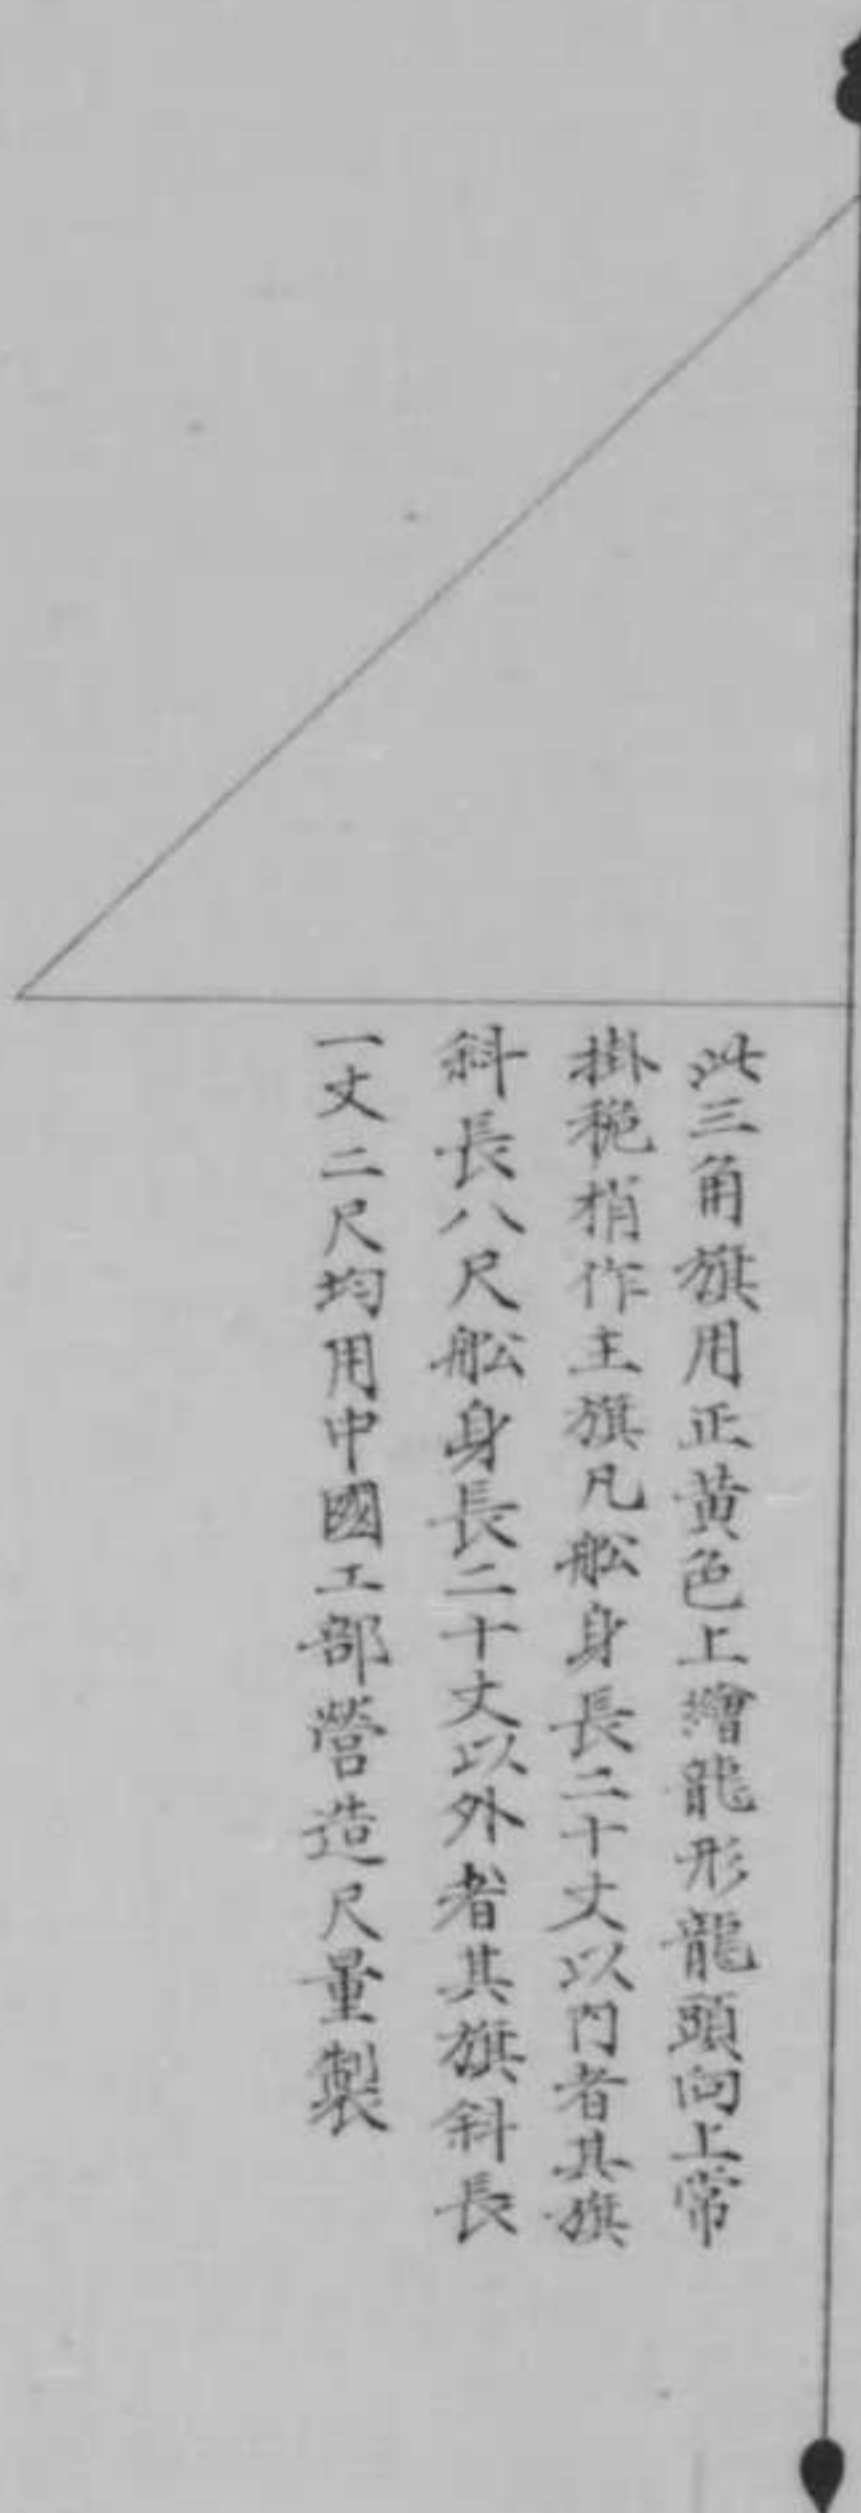 此三角旗用正黄色上繪龍形龍頭向上常
掛桅梢作主旗凡舩身長二十丈以內者其旗
斜長八尺舩身長二十丈以外者其旗斜長
一丈二尺均用中國工部營造尺量製